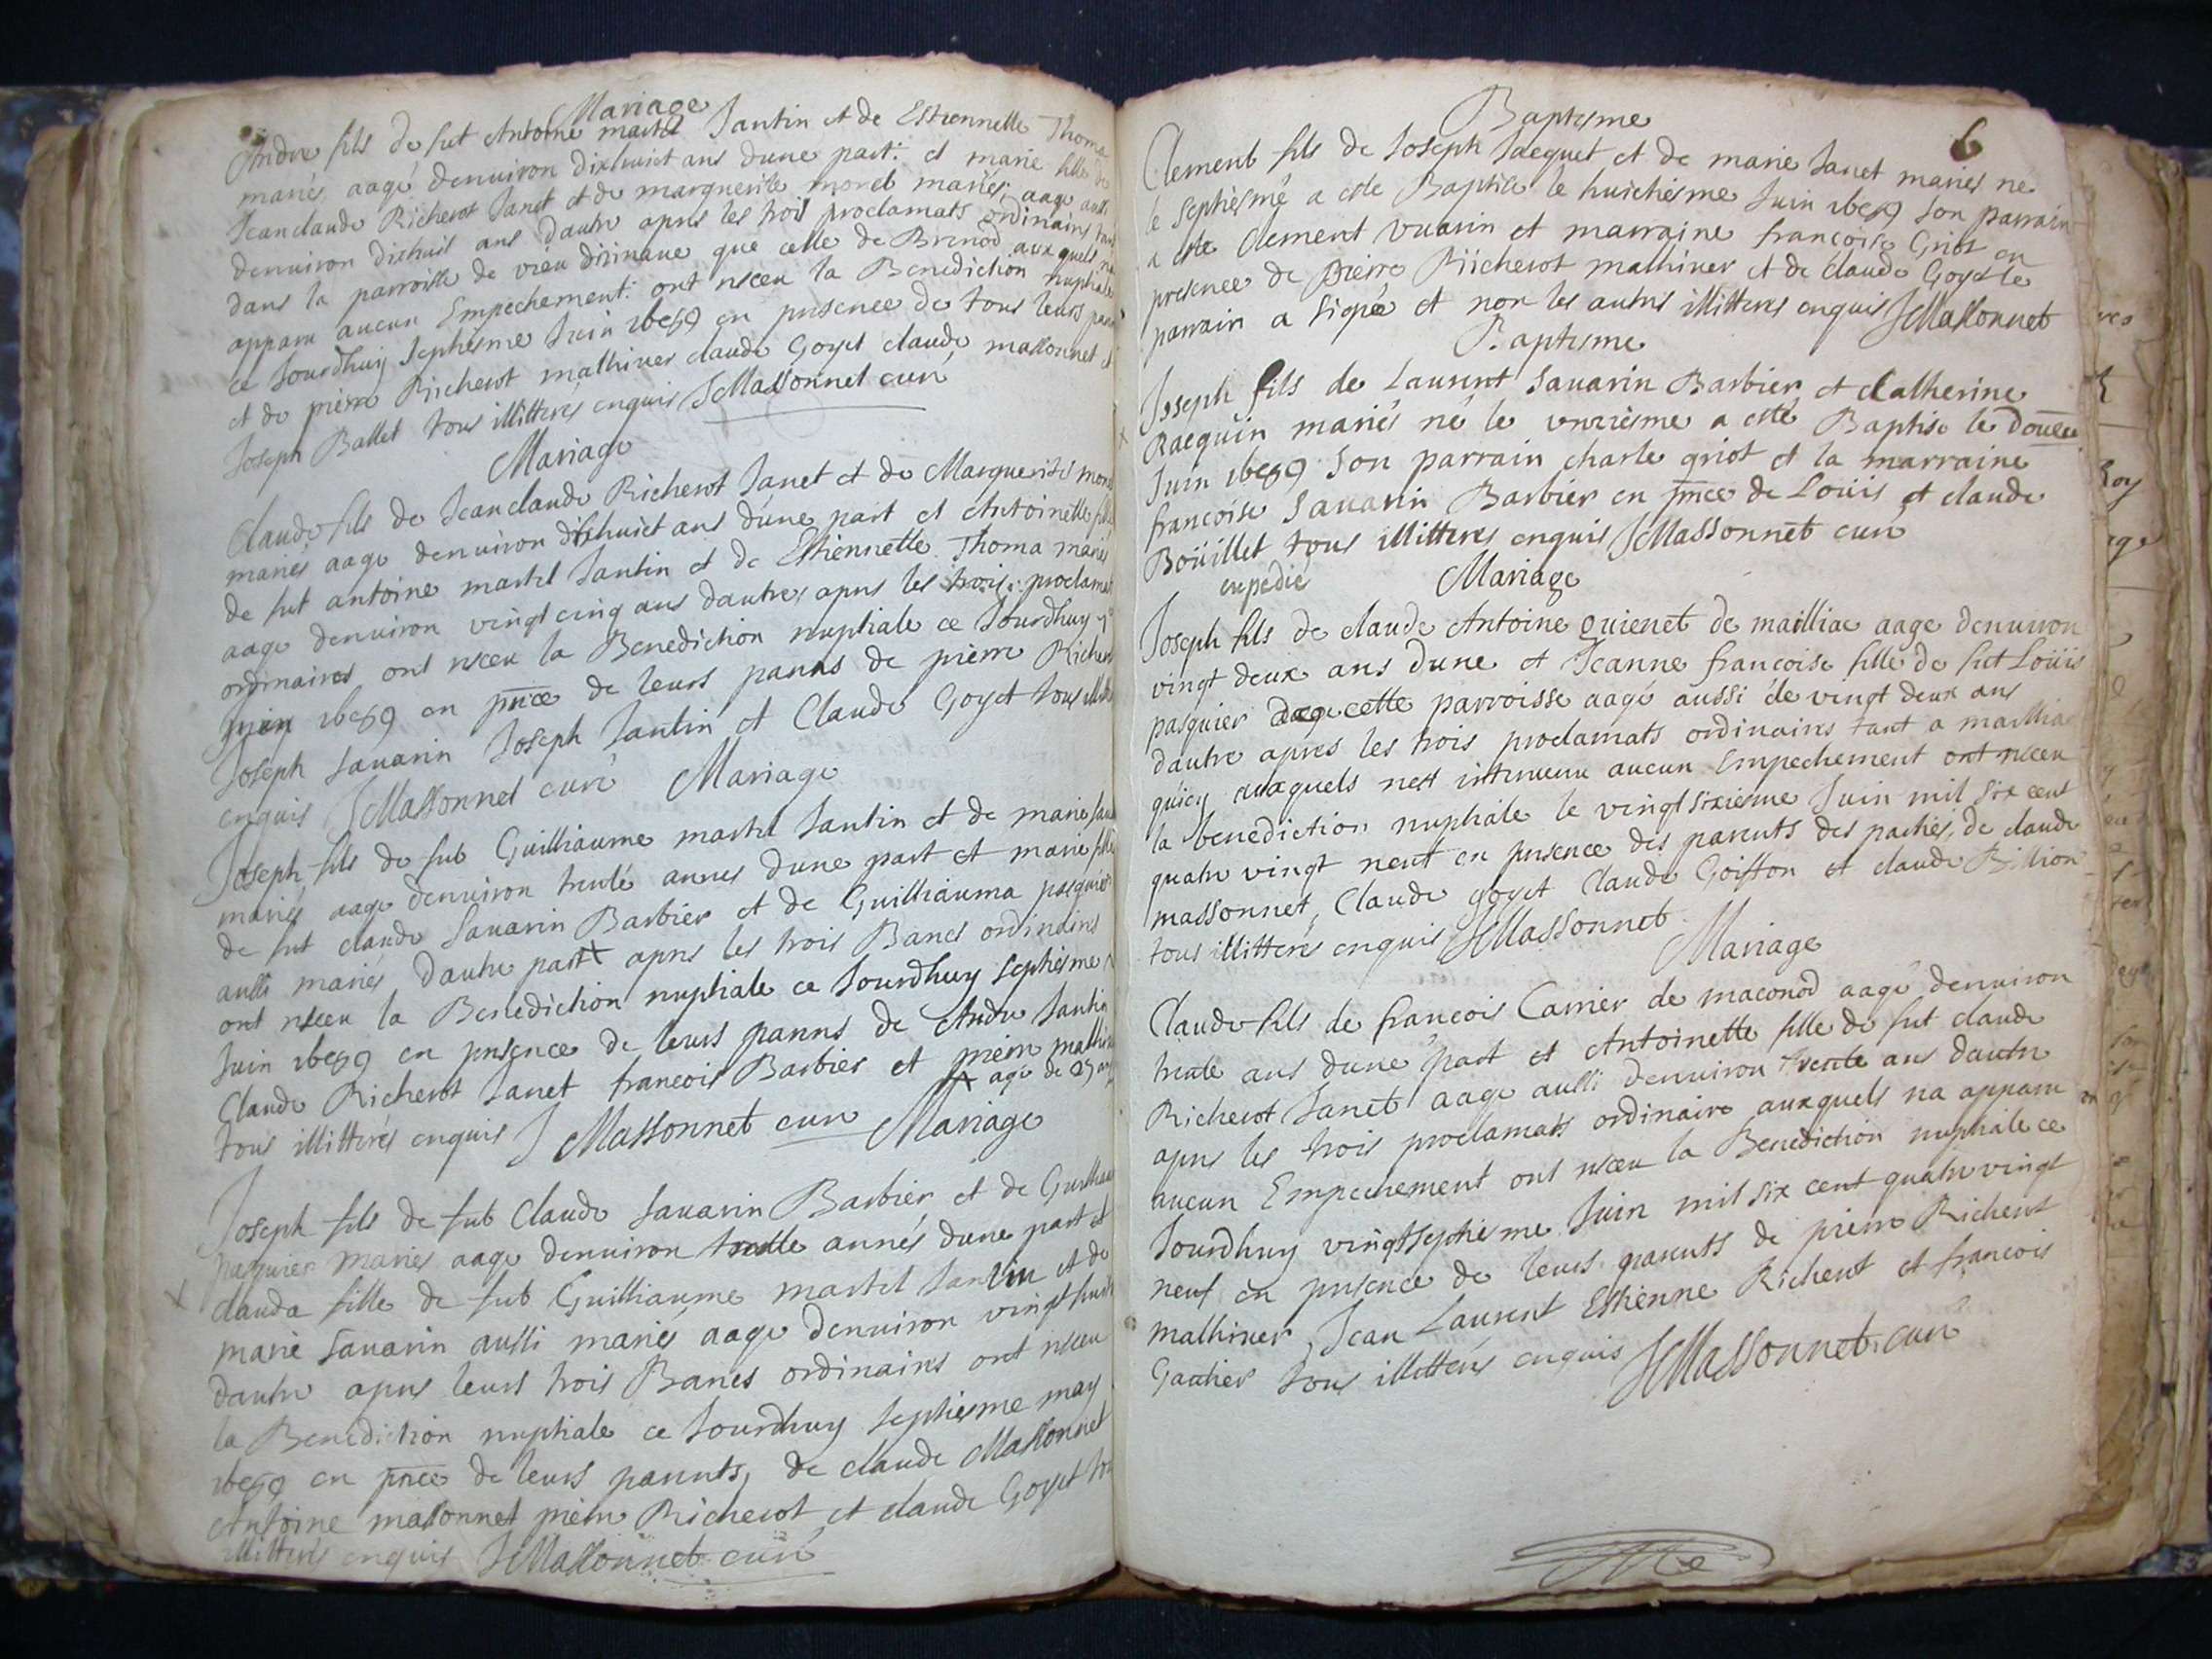 Mariage
Andre fils de fut Antoine martel Jantin et de Estiennette Thoma
mariés, aagé denuiron dixhuict ans dune part: et marie fille de
Jean claude Richerot Janet et de marguerite morel mariés; aage aussi
denuiron dixhuit ans dautre apres les trois proclamats ordinaires tant
dans la parroisse de vieu disinaue que celle de Brenod auxquels na
apparu aucun Empechement: ont receu la Benediction nuptiale
ce Jourdhuy septiesme Juin 1689 en presence de tous leurs
et de pierre Richerot mathiner claude Goyet claude massonnet et
Joseph Ballet tous illitterés enquis JCMassonnet curé
Mariage
Claude fils de Jean claude Richerot Janet et de Marguerite morel
mariés aage denuiron dixhuict ans d'une part et Antoinette fille
de fut antoine martel Jantin et de Estiennette Thoma mariés
aage denuiron vingt cinq ans dautre, apres les trois proclamats
ordinaires ont receu la Benediction nuptiale ce Jourdhuy
Juin 1689 en pnce de leurs parans de pierre Richerot
Joseph sauarin Joseph Jantin et Claude Goyet tous
enquis JCMassonnet curé
Mariage
Joseph fils de fut Guilliaume martel Jantin et de marie
mariés aage denuiron trente annes dune part et marie fille
de fut claude Sauarin Barbier et de Guilliauma pasquier
aussi mariés dautre part X apres les trois Bancs ordinaires
ont receu la Benediction nuptiale ce Jourdhuy septiesme
Juin 1689 en presence de leurs parans de Andre Jantin
Claude Richerot Janet francois Barbier et pierre
tous illitterés enquis JCMassonnet curé X agé de 25 ans
Mariage
Joseph fils de fut Claude Sauarin Barbier et de
pasquier mariés aage denuiron trente annés dune part et
clauda fille de fut Guilliaume martel Jantin et de
marie Sauarin aussi mariés aage denuiron vingt huit
dautre apres leurs trois Bancs ordinaires ont receu
la Benediction nuptiale ce Jourdhuy septiesme may
1689 en pnce de leurs parents, de claude Massonnet
Antoine massonnet pierre Richerot et claude Goyet
illitterés enquis JCMassonnet curé
6
Baptesme
Clement fils de Joseph Jacquet et de marie Janet mariés né
le septiesme a este Baptisé le huictiesme Juin 1689 son parrain
a este Clement vuarin et marraine francoise Griot en
presence de pierre Richerot mathiner et de claude Goyet le
parrain a signé et non les autres illitteres enquis JCMassonnet
Baptesme
Joseph fils de Laurent Sauarin Barbier et Catherine
Racquin mariés né le vnziesme a esté Baptisé le
Juin 1689 son parrain charle griot et la marraine
francoise Sauarin Barbier en pnce de Loüis et claude
Boüillet tous illitteres enquis JCMassonnet curé
expedié
Mariage
Joseph fils de claude Antoine quienet de mailliac aage denuiron
vingt deux ans dune et Jeanne francoise fille de fut Loüis
pasquier de cette parroisse aagé aussi de vingt deux ans
dautre apres les trois proclamats ordinaires tant a mailliac
quicy auxquels nest interuenu aucun Empechement ont receu
la benediction nuptiale le vingt sixiesme Juin mil six cent
quatre vingt neuf en presence des parents des parties, de claude
massonnet, Claude goyet Claude Goiffon et claude Billion
tous illitterés enquis JCMassonnet
Mariage
Claude fils de francois Carrier de maconod aagé denuiron
trente ans dune part et Antoinette fille de fut claude
Richerot Janet aage aussi denuiron trente ans dautre
apres les trois proclamats ordinaire auxquels na apparu
aucun Empechement ont receu la Benediction nuptiale ce
Jourdhuy vingtseptiesme Juin mil six cent quatre vingt
neuf en presence de leurs parents de pierre Richerot
mathiner, Jean Laurent Estienne Richerot et francois
Gautier tous illitterés enquis JCMassonnet curé